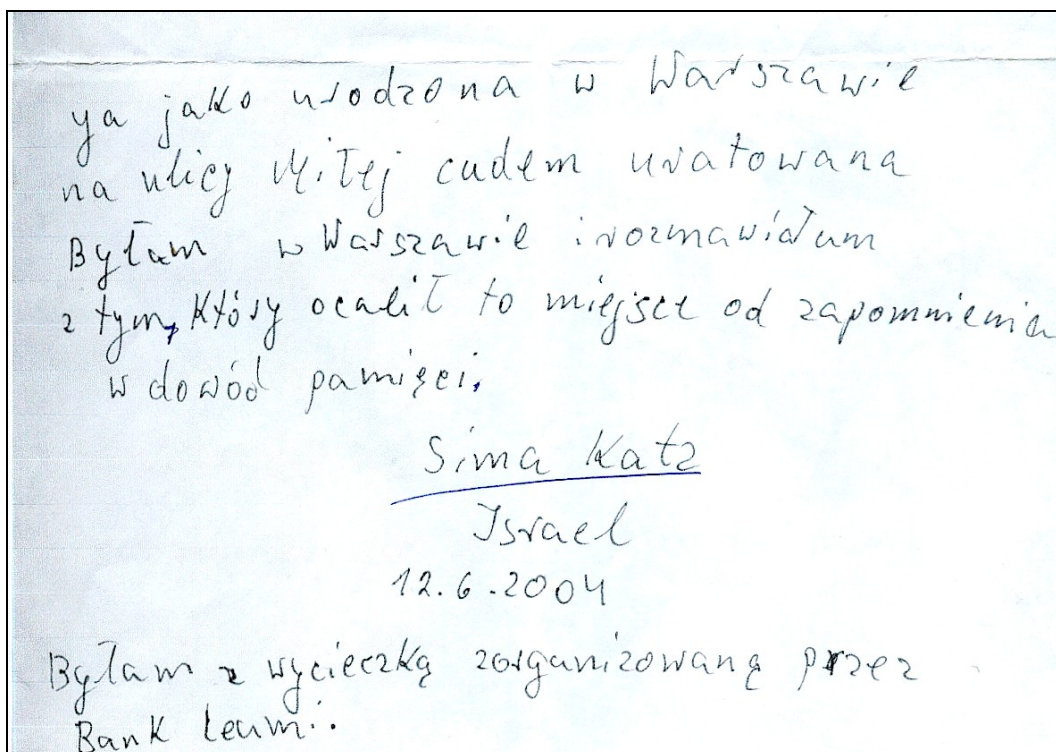 ya jako urodzona w Warszawie
na ulicy Miłej cudem uratowana
Byłam w Warszawie i rozmawiałam
z tym, który ocalił to miejsce od zapomnienia
w dowód pamięci.
Sima Katz
Israel
12.6.2004
Byłam z wycieczką zorganizowaną przez
Bank Leumi.